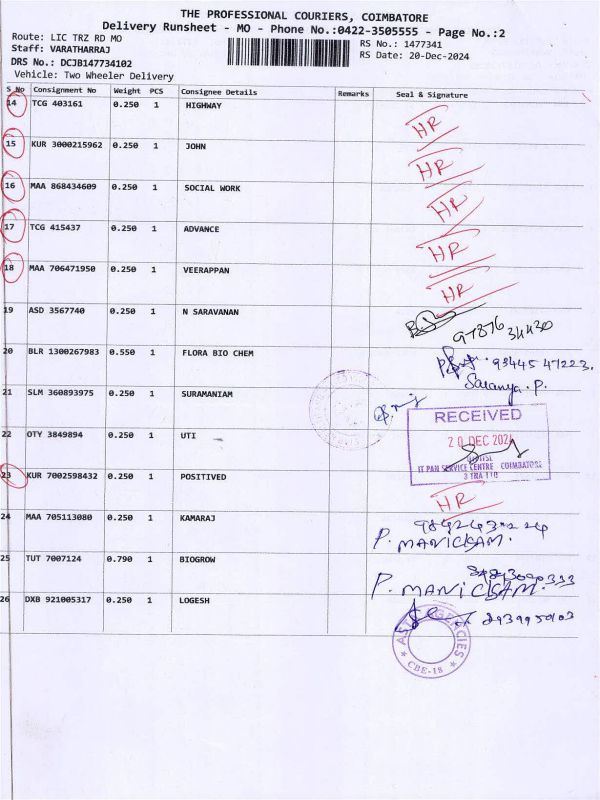 THE PROFESSIONAL COURIERS, COIMBATORE
Delivery Runsheet - MO - Phone No.:0422-3505555 - Page No.:2
Route: LIC TRZ RD MO
RS No.: 1477341
Staff: VARATHARRAJ
RS Date: 20-Dec-2024
DRS No.: DCJB147734102
Vehicle: Two Wheeler Delivery
S No Consignment No Weight PCS Consignee Details Remarks Seal & Signature
14 TCG 403161 0.250 1 HIGHWAY HR
15 KUR 3000215962 0.250 1 JOHN HR
16 MAA 868434609 0.250 1 SOCIAL WORK HR
17 TCG 415437 0.250 1 ADVANCE HR
18 MAA 706471950 0.250 1 VEERAPPAN HR
19 ASD 3567740 0.250 1 N SARAVANAN 97876 34430
20 BLR 1300267983 0.550 1 FLORA BIO CHEM 93445 47223.
Saranya. P.
21 SLM 360893975 0.250 1 SURAMANIAM
RECEIVED
22 OTY 3849894 0.250 1 UTI
20 DEC 2024
IT PAN SERVICE CENTRE COIMBATORE
23 KUR 7002598432 0.250 1 POSITIVED HR
24 MAA 705113080 0.250 1 KAMARAJ
P. MANICKAM.
25 TUT 7007124 0.790 1 BIOGROW
P. MANICKAM.
26 DXB 921005317 0.250 1 LOGESH
AGENCIES
CBE-18